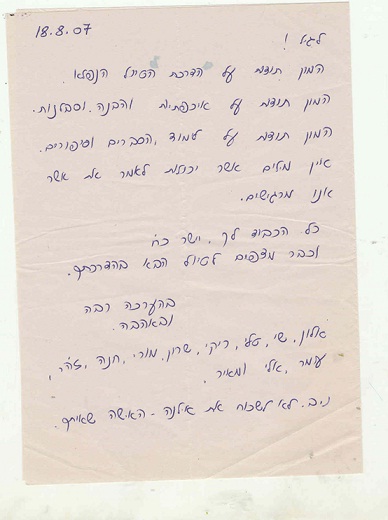 18.8.07
לגיל !
המון תודות על הדרכת הטיול הנפלא.
המון תודות על איכפתיות והבנה וסבלנות.
המון תודות על לימוד, הסברים וסיפורים.
אין מילים אשר יכולות לאמר את אשר
אנו מרגישים.
כל הכבוד לך, ישר כח
וכבר מצפים לטיול הבא בהדרכתך.
בהערכה רבה
ובאהבה.
אלון, שי, טלי, ריקי, שרון, מורי, חנה, זהר,
עמר, אלי ומאיר.
נ.ב. לא לשכוח את אילנה - האישה שאיתך.